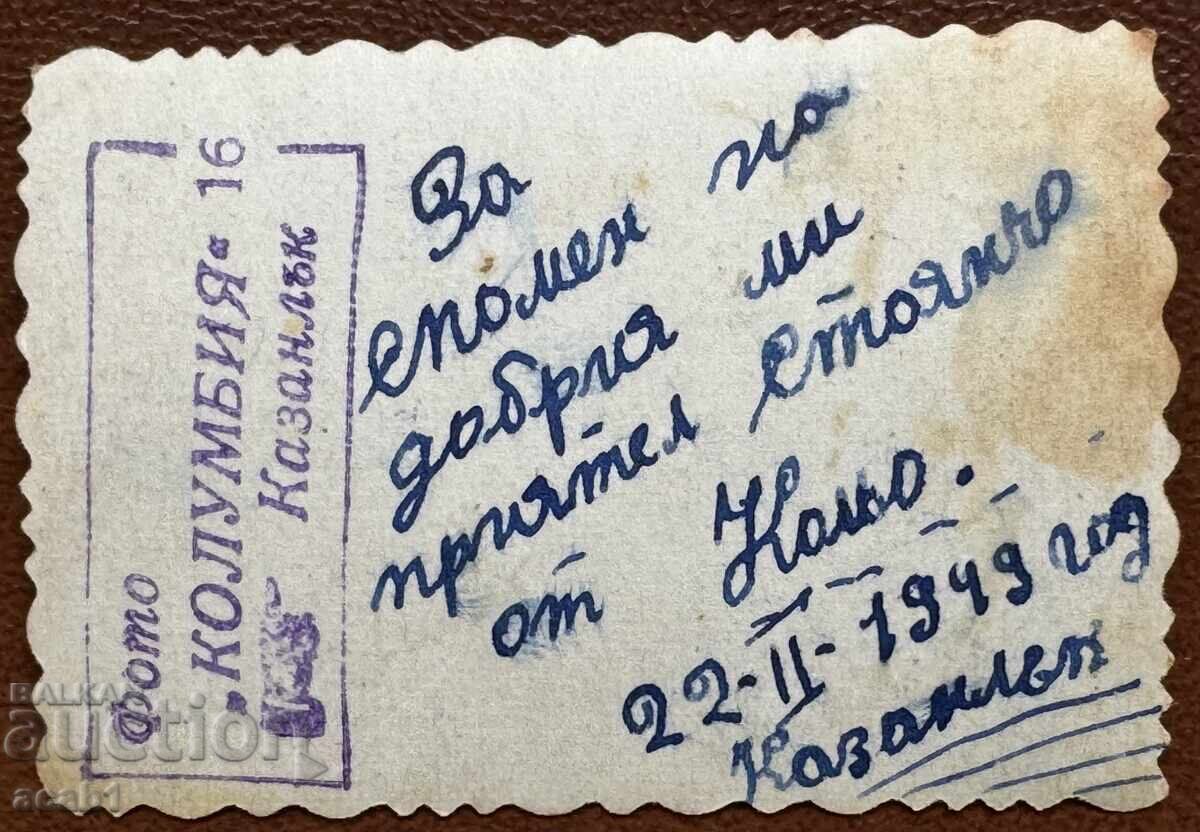 фото
„КОЛУМБИЯ“ 16
Казанлък
За
спомен на
добрия ми
приятел Стоянчо
от Кольо.
22-II-1949 год
Казанлък
BALKAN
auction
acab1